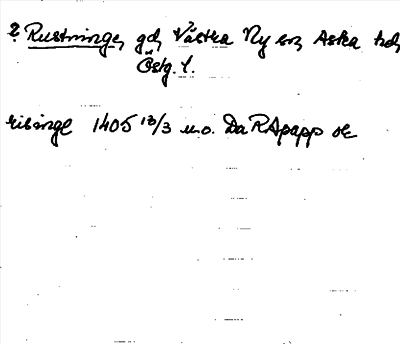 ? Rustninge, gd, Västra Ny sn, Aska hd,
Östg. l.
risinge 1405 13/3 u.o. Da RApapp ok